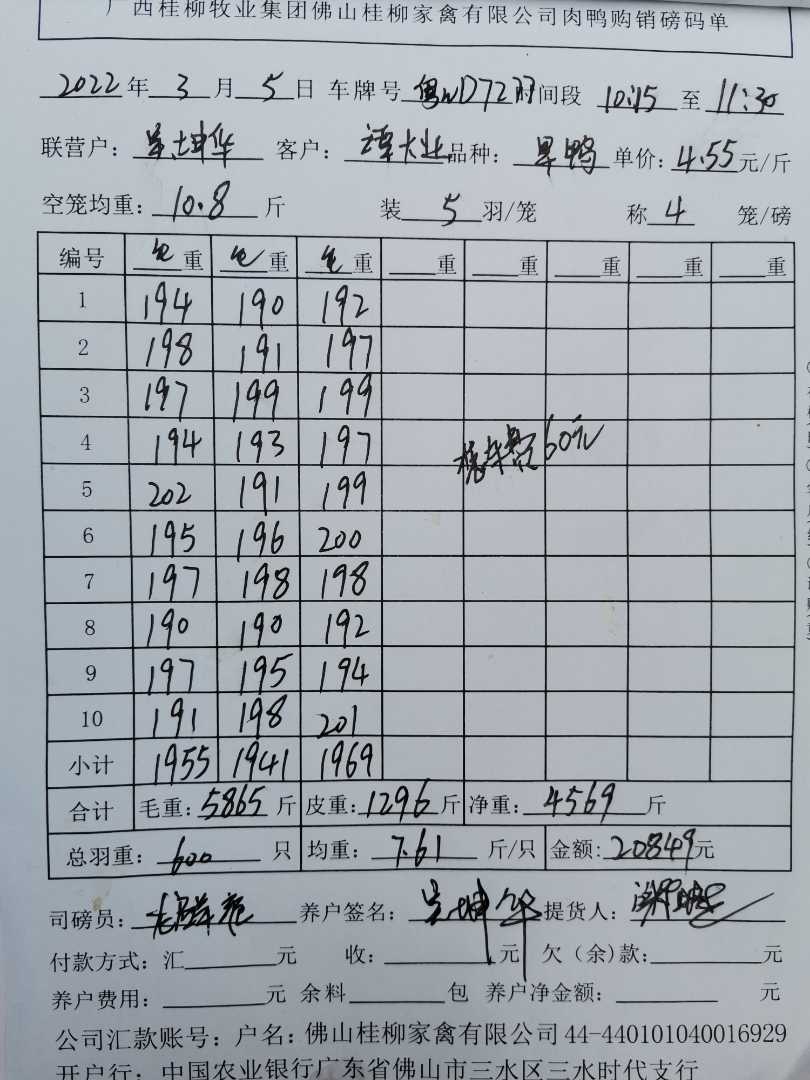 广西桂柳牧业集团佛山桂柳家禽有限公司肉鸭购销磅码单
2022年3月5日 车牌号 时间段 10:15至11:30
联营户：吴坤华 客户：谭大业 品种：旱鸭 单价：4.55元/斤
空笼均重：10.8斤 装5羽/笼 称4笼/磅
编号 毛重 毛重 毛重 重 重 重 重 重
1 194 190 192
2 198 191 197
3 197 199 199
4 194 193 197 60元
5 202 191 199
6 195 196 200
7 197 198 198
8 190 190 192
9 197 195 194
10 191 198 201
小计 1955 1941 1969
合计 毛重：5865斤 皮重：1296斤 净重：4569斤
总羽重：600只 均重：7.61斤/只 金额：20849元
司磅员： 养户签名：吴坤华 提货人：
付款方式：汇 元 收： 元 欠（余）款： 元
养户费用： 元 余料 包 养户净金额： 元
公司汇款账号：户名：佛山桂柳家禽有限公司 44-440101040016929
开户行：中国农业银行广东省佛山市三水区三水时代支行